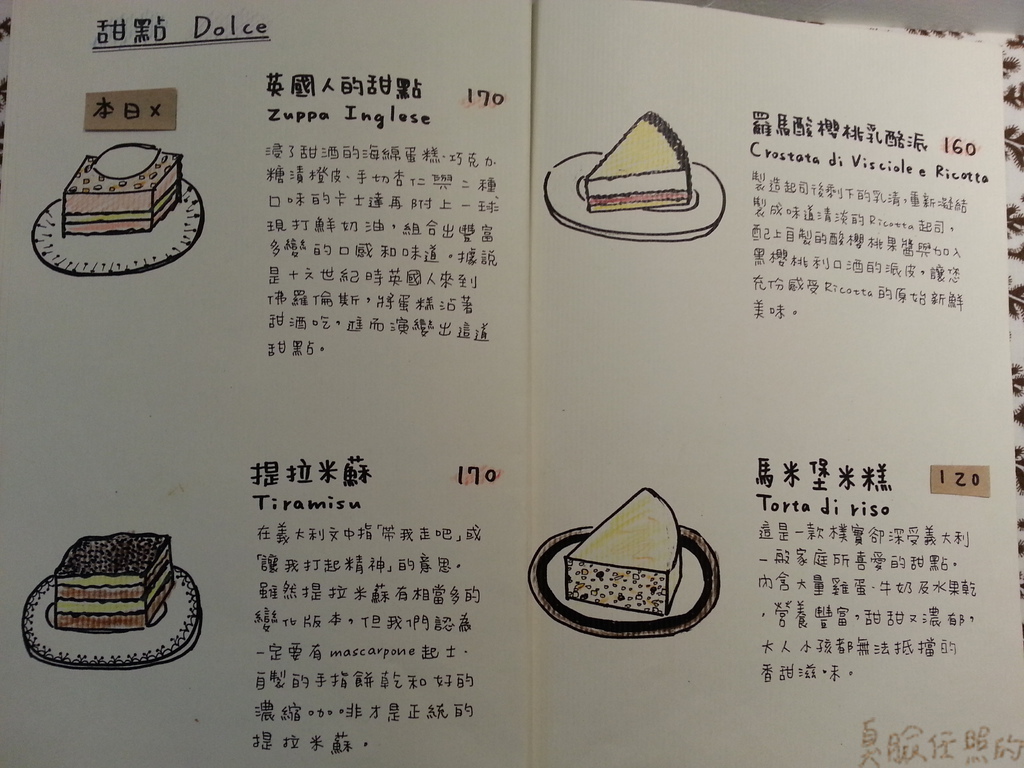 甜點 Dolce
本日X
英國人的甜點 170
Zuppa Inglese
浸了甜酒的海綿蛋糕、巧克力、
糖漬橙皮、手切杏仁與二種
口味的卡士達再附上一球
現打鮮奶油，組合出豐富
多變的口感和味道。據說
是十六世紀時英國人來到
佛羅倫斯，將蛋糕沾著
甜酒吃，進而演變出這道
甜點。
提拉米蘇 170
Tiramisu
在義大利文中指「帶我走吧」或
「讓我打起精神」的意思。
雖然提拉米蘇有相當多的
變化版本，但我們認為
一定要有mascarpone起士、
自製的手指餅乾和好的
濃縮咖啡才是正統的
提拉米蘇。
羅馬酸櫻桃乳酪派 160
Crostata di Visciole e Ricotta
製造起司後剩下的乳清，重新凝結
製成味道清淡的Ricotta起司，
配上自製的酸櫻桃果醬與加入
黑櫻桃利口酒的派皮，讓您
充份感受Ricotta的原始新鮮
美味。
馬米堡米糕 120
Torta di riso
這是一款樸實卻深受義大利
一般家庭所喜愛的甜點。
內含大量雞蛋、牛奶及水果乾
，營養豐富，甜甜又濃郁，
大人小孩都無法抵擋的
香甜滋味。
臭臉任照的